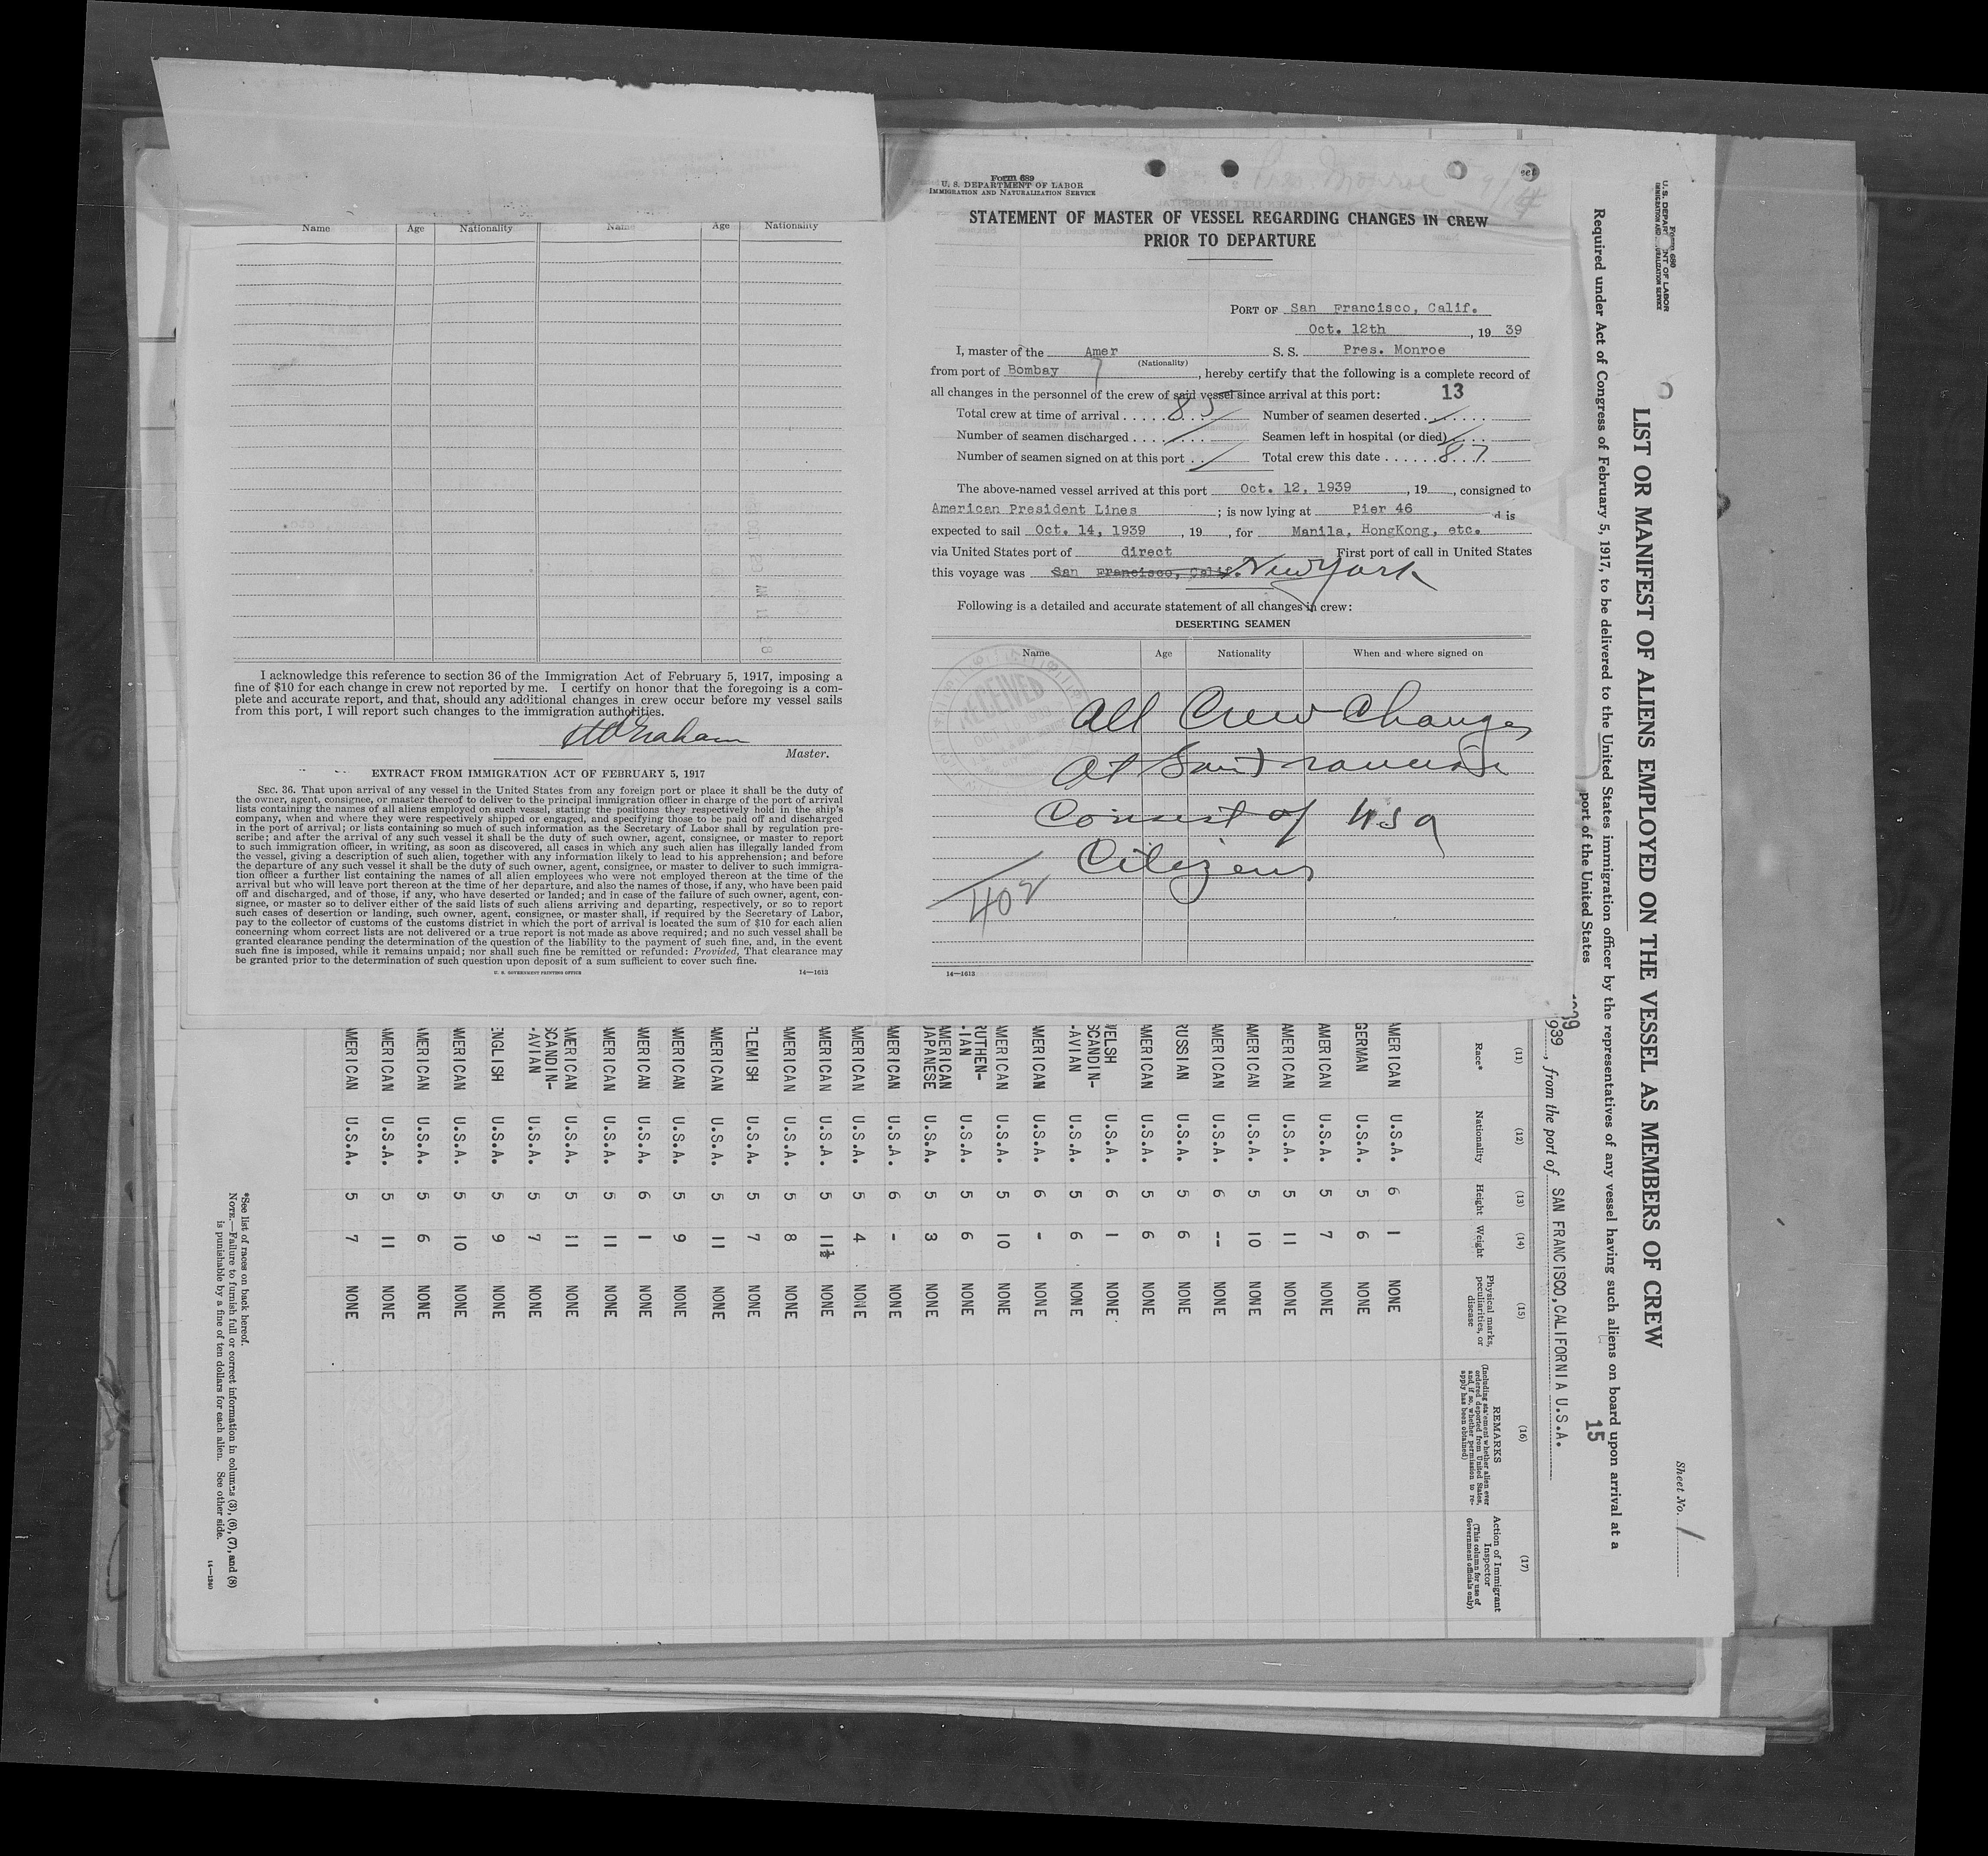 Name Age Nationality Name Age Nationality
I acknowledge this reference to section 36 of the Immigration Act of February 5, 1917, imposing a
fine of $10 for each change in crew not reported by me. I certify on honor that the foregoing is a com-
plete and accurate report, and that, should any additional changes in crew occur before my vessel sails
from this port, I will report such changes to the immigration authorities.
Graham
Master.
EXTRACT FROM IMMIGRATION ACT OF FEBRUARY 5, 1917
SEC. 36. That upon arrival of any vessel in the United States from any foreign port or place it shall be the duty of
the owner, agent, consignee, or master thereof to deliver to the principal immigration officer in charge of the port of arrival
lists containing the names of all aliens employed on such vessel, stating the positions they respectively hold in the ship's
company, when and where they were respectively shipped or engaged, and specifying those to be paid off and discharged
in the port of arrival; or lists containing so much of such information as the Secretary of Labor shall by regulation pre-
scribe; and after the arrival of any such vessel it shall be the duty of such owner, agent, consignee, or master to report
to such immigration officer, in writing, as soon as discovered, all cases in which any such alien has illegally landed from
the vessel, giving a description of such alien, together with any information likely to lead to his apprehension; and before
the departure of any such vessel it shall be the duty of such owner, agent, consignee, or master to deliver to such immigra-
tion officer a further list containing the names of all alien employees who were not employed thereon at the time of the
arrival but who will leave port thereon at the time of her departure, and also the names of those, if any, who have been paid
off and discharged, and of those, if any, who have deserted or landed; and in case of the failure of such owner, agent, con-
signee, or master so to deliver either of the said lists of such aliens arriving and departing, respectively, or so to report
such cases of desertion or landing, such owner, agent, consignee, or master shall, if required by the Secretary of Labor,
pay to the collector of customs of the customs district in which the port of arrival is located the sum of $10 for each alien
concerning whom correct lists are not delivered or a true report is not made as above required; and no such vessel shall be
granted clearance pending the determination of the question of the liability to the payment of such fine, and, in the event
such fine is imposed, while it remains unpaid; nor shall such fine be remitted or refunded: Provided, That clearance may
be granted prior to the determination of such question upon deposit of a sum sufficient to cover such fine.
U. S. GOVERNMENT PRINTING OFFICE 14—1613
Form 689
U. S. DEPARTMENT OF LABOR
IMMIGRATION AND NATURALIZATION SERVICE
Pres. Monroe
STATEMENT OF MASTER OF VESSEL REGARDING CHANGES IN CREW
PRIOR TO DEPARTURE
PORT OF San Francisco, Calif.
Oct. 12th, 19 39
I, master of the Amer S. S. Pres. Monroe
(Nationality)
from port of Bombay, hereby certify that the following is a complete record of
all changes in the personnel of the crew of said vessel since arrival at this port: 13
Total crew at time of arrival 85 Number of seamen deserted
Number of seamen discharged Seamen left in hospital (or died)
Number of seamen signed on at this port Total crew this date 87
The above-named vessel arrived at this port Oct. 12, 1939, 19, consigned to
American President Lines; is now lying at Pier 46 d is
expected to sail Oct. 14, 1939, 19, for Manila, HongKong, etc.
via United States port of direct First port of call in United States
this voyage was San Francisco, Calif. New York
Following is a detailed and accurate statement of all changes in crew:
DESERTING SEAMEN
Name Age Nationality When and where signed on
RECEIVED
All Crew Changes
at San Francisco
Consist of USA
Citizens
402
14—1613
Form 680
U. S. DEPAR NT OF LABOR
Sheet No. 1
LIST OR MANIFEST OF ALIENS EMPLOYED ON THE VESSEL AS MEMBERS OF CREW
Required under Act of Congress of February 5, 1917, to be delivered to the United States immigration officer by the representatives of any vessel having such aliens on board upon arrival at a
port of the United States
15
939, from the port of SAN FRANCISCO, CALIFORNIA U.S.A.
(11) (12) (13) (14) (15) (16) (17)
Race* Nationality Height Weight Physical marks, peculiarities, or disease REMARKS (Including statement whether alien ever ordered deported from United States, and if so, whether permission to re-apply has been obtained) Action of Immigrant Inspector (This column for use of Government officials only)
MERICAN U.S.A. 6 1 NONE
GERMAN U.S.A. 5 6 NONE
AMERICAN U.S.A. 5 7 NONE
AMERICAN U.S.A. 5 11 NONE
MERICAN U.S.A. 5 10 NONE
AMERICAN U.S.A. 6 -- NONE
RUSSIAN U.S.A. 5 6 NONE
AMERICAN U.S.A. 5 6 NONE
WELSH U.S.A. 6 1 NONE
SCANDIN-
-AVIAN U.S.A. 5 6 NONE
AMERICAN U.S.A. 6 - NONE
AMERICAN U.S.A. 5 10 NONE
RUTHEN-
-IAN U.S.A. 5 6 NONE
AMERICAN
JAPANESE U.S.A. 5 3 NONE
AMERICAN U.S.A. 6 - NONE
AMERICAN U.S.A. 5 4 NONE
AMERICAN U.S.A. 5 11½ NONE
AMERICAN U.S.A. 5 8 NONE
FLEMISH U.S.A. 5 7 NONE
AMERICAN U.S.A. 5 11 NONE
AMERICAN U.S.A. 5 9 NONE
MERICAN U.S.A. 6 1 NONE
AMERICAN U.S.A. 5 11 NONE
AMERICAN U.S.A. 5 11 NONE
SCANDIN-
-AVIAN U.S.A. 5 7 NONE
ENGLISH U.S.A. 5 9 NONE
AMERICAN U.S.A. 5 10 NONE
MERICAN U.S.A. 5 6 NONE
AMERICAN U.S.A. 5 11 NONE
AMERICAN U.S.A. 5 7 NONE
*See list of races on back hereof.
NOTE.—Failure to furnish full or correct information in columns (3), (6), (7), and (8)
is punishable by a fine of ten dollars for each alien. See other side.
14—1240